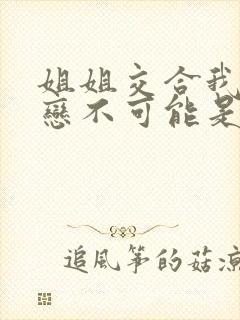 姐姐交合我
戀不可能是
追風箏的菇涼